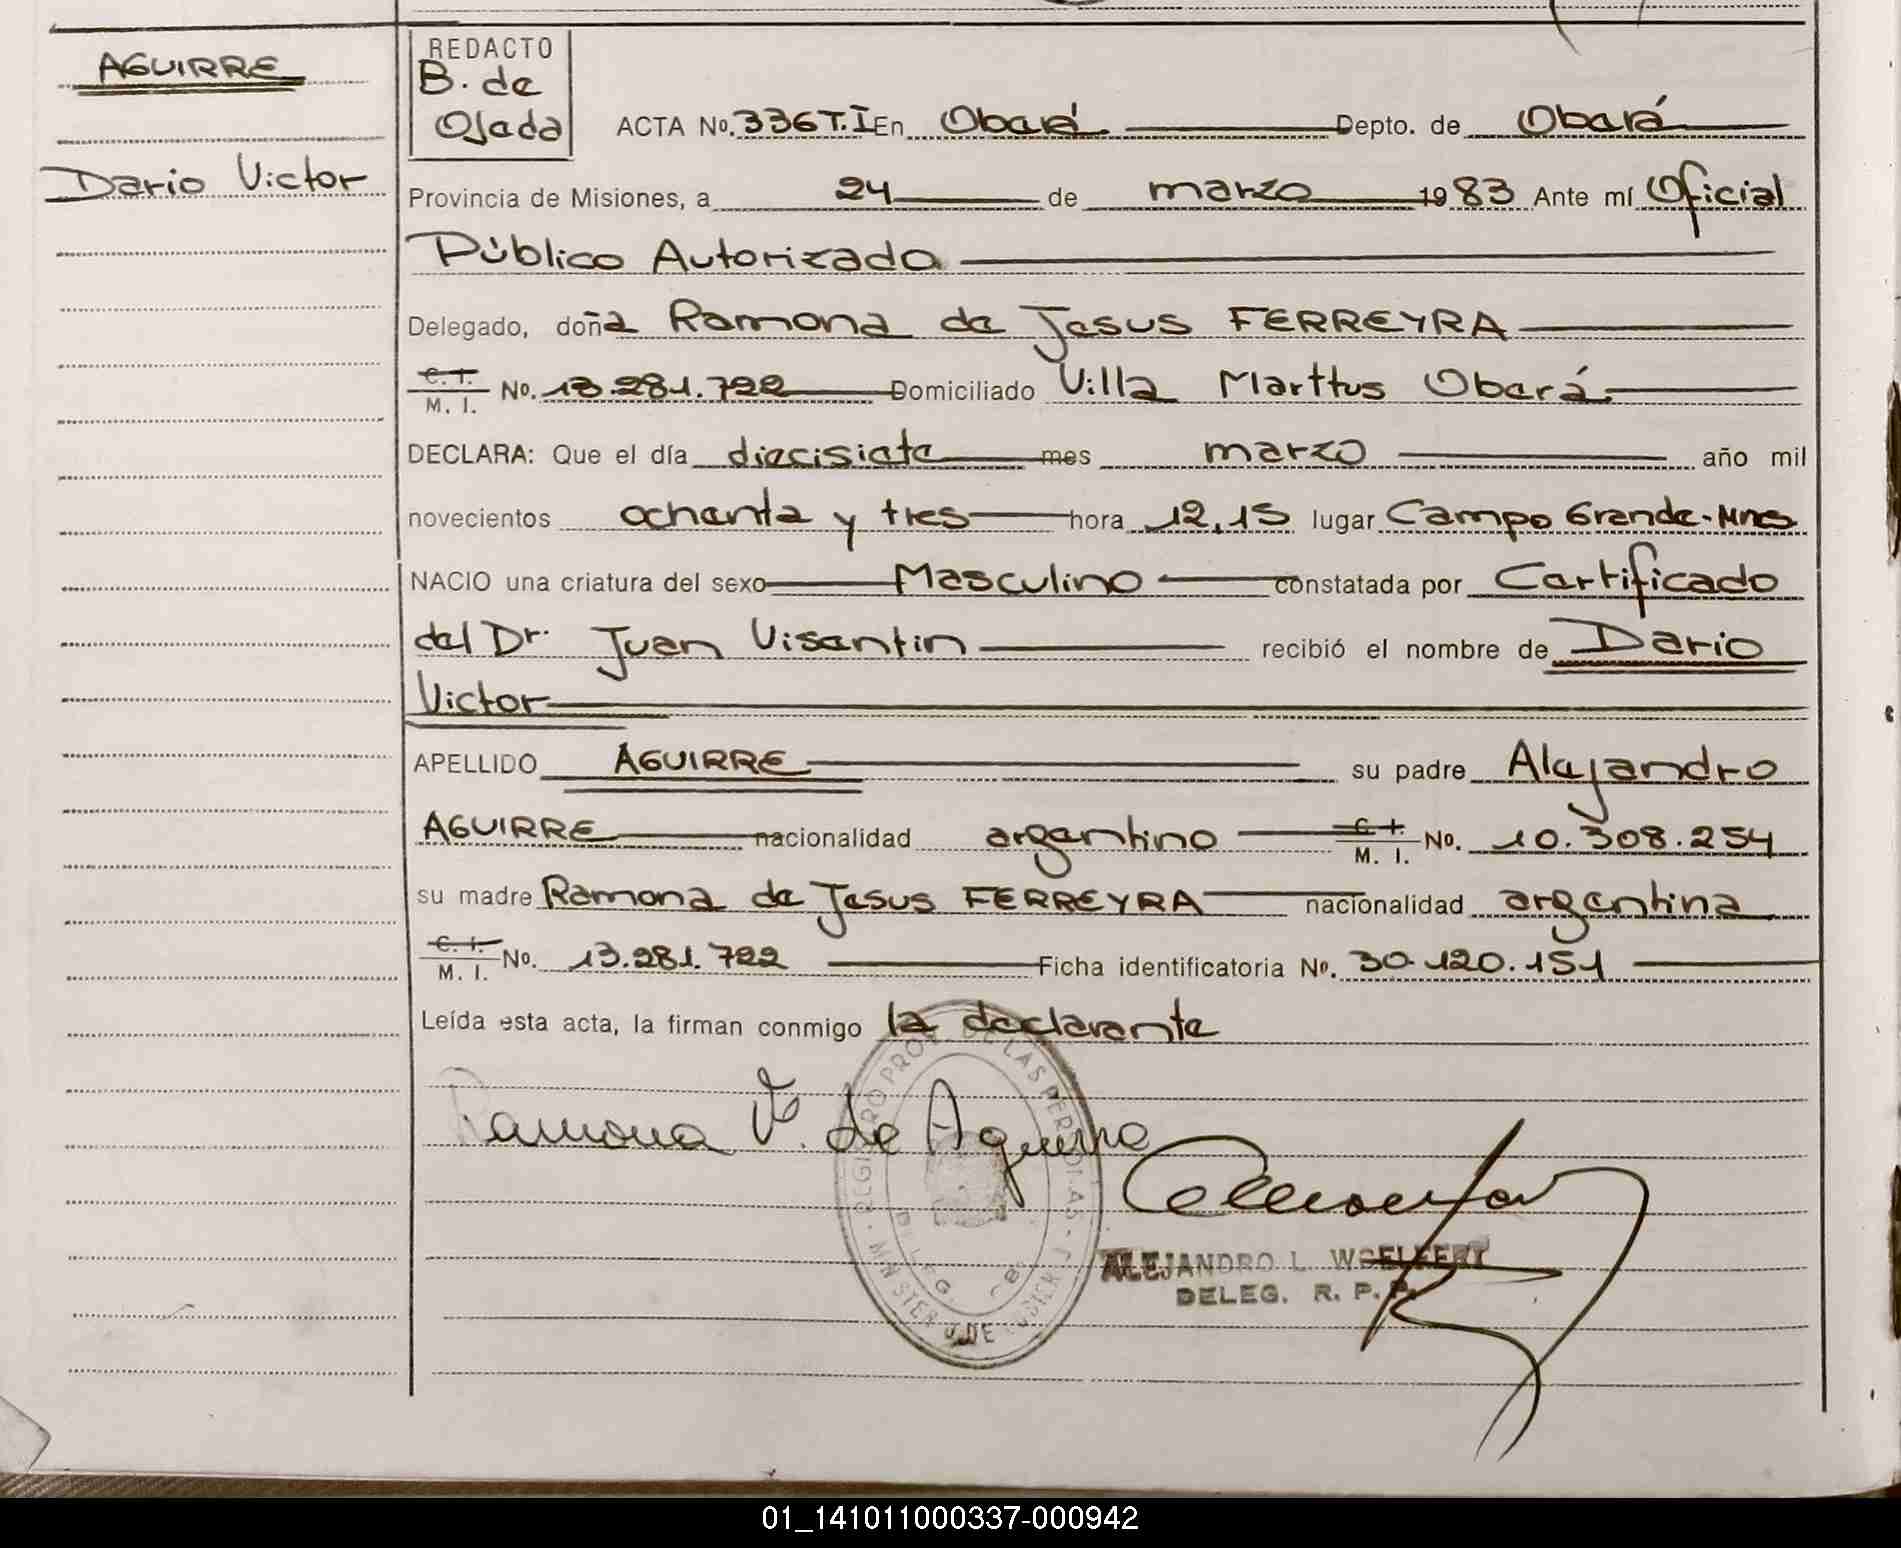 AGUIRRE
Dario Victor
REDACTO
B. de
Ojeda
ACTA No. 336 T.I En Oberá Depto. de Oberá
Provincia de Misiones, a 24 de marzo 1983 Ante mí Oficial
Público Autorizado
Delegado, doña Ramona de Jesus FERREYRA
C. I. M. I. No. 13.281.722 Domiciliado Villa Marttus Oberá.
DECLARA: Que el día diecisiete mes marzo año mil
novecientos ochenta y tres hora 12,15 lugar Campo Grande-Mnes
NACIO una criatura del sexo Masculino constatada por Certificado
del Dr. Juan Visentin recibió el nombre de Dario
Victor
APELLIDO AGUIRRE su padre Alejandro
AGUIRRE nacionalidad argentino C. I. M. I. No. 10.308.254
su madre Ramona de Jesus FERREYRA nacionalidad argentina
C. I. M. I. No. 13.281.722 Ficha identificatoria No. 30.120.151
Leída esta acta, la firman conmigo la declarante
Ramona F. de Aguirre
REGISTRO PROV. DE LAS PERSONAS
MINISTERIO DE
DELEG.
ALEJANDRO L. WOELFERT
DELEG. R. P. P.
01_141011000337-000942